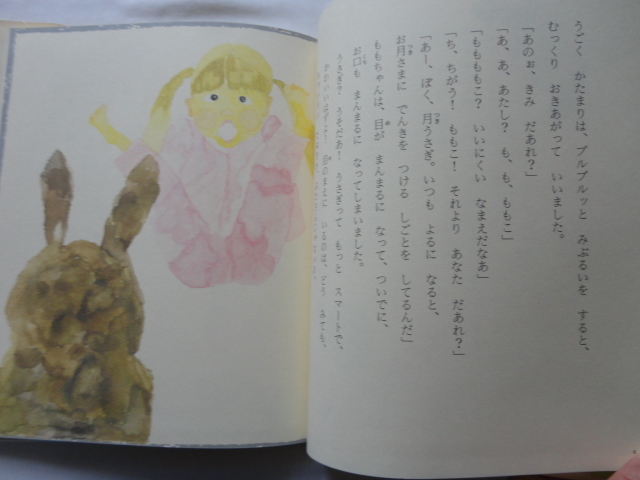 うごく　かたまりは、ブルブルッと　みぶるいを　すると、
むっくり　おきあがって　いいました。
「あのぉ、きみ　だあれ？」
「あ、あ、あたし？　も、も、ももこ」
「ももももこ？　いいにくい　なまえだなあ」
「ち、ちがう！　ももこ！　それより　あなた　だあれ？」
「あー、ぼく、月うさぎ。いつも　よるに　なると、
お月さまに　でんきを　つける　しごとを　してるんだ」
ももちゃんは、目が　まんまるに　なって、ついでに、
お口も　まんまるに　なってしまいました。
うさぎ？　うそだあ！　うさぎって　もっと　スマートで、